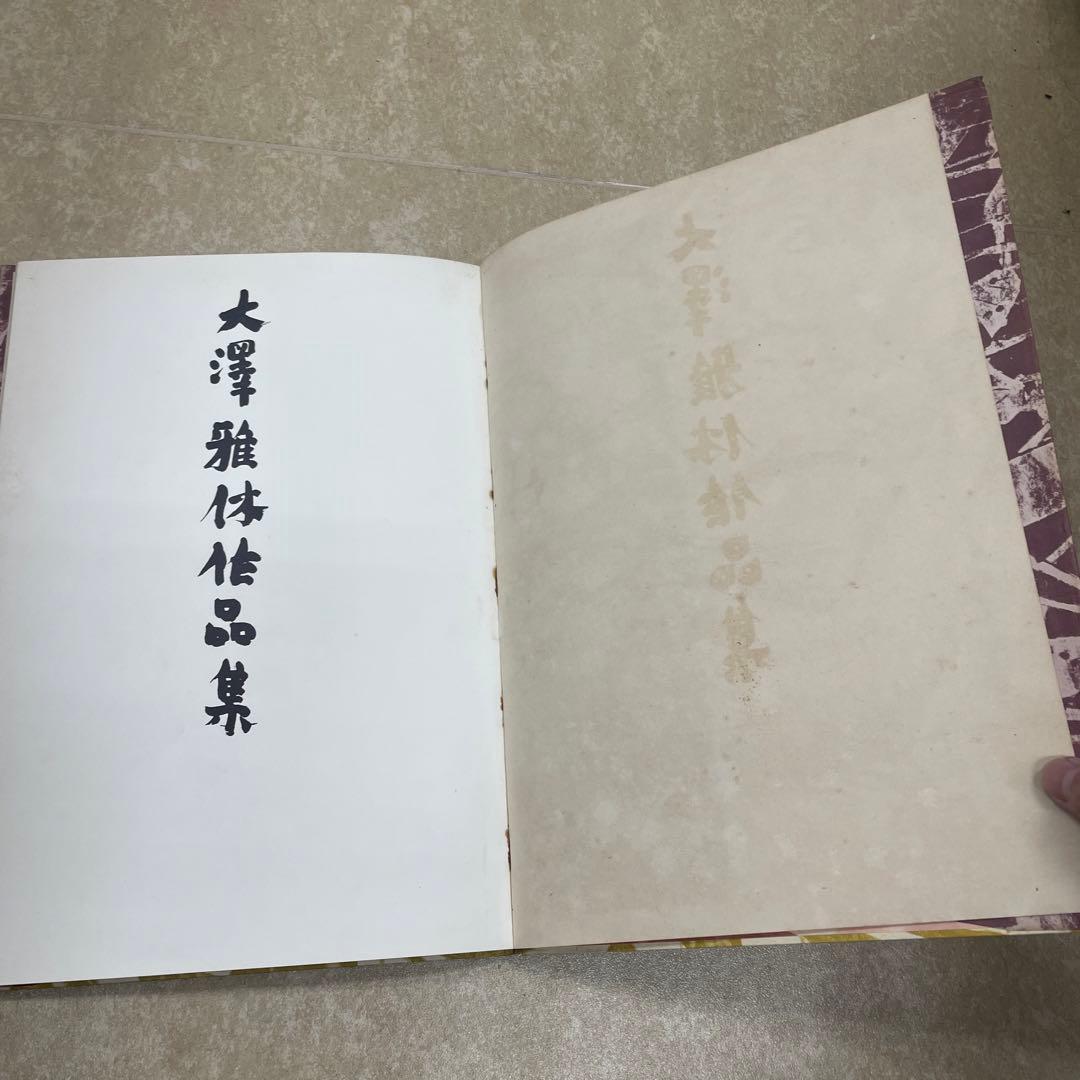 大澤雅休作品集